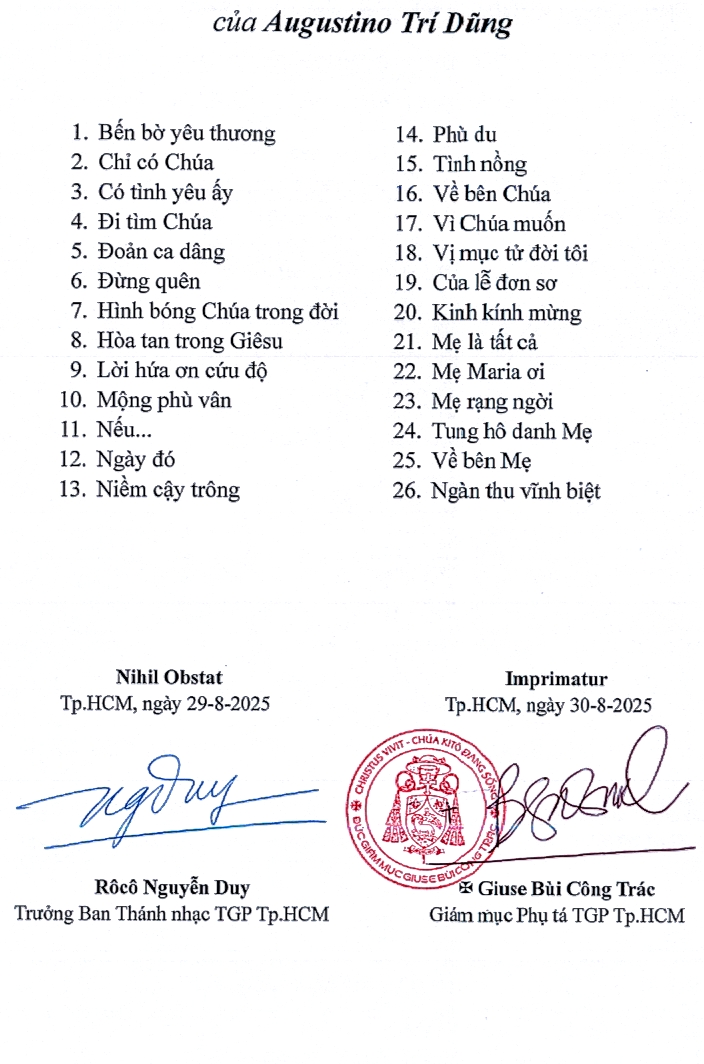 của Augustino Trí Dũng
1. Bến bờ yêu thương
2. Chỉ có Chúa
3. Có tình yêu ấy
4. Đi tìm Chúa
5. Đoản ca dâng
6. Đừng quên
7. Hình bóng Chúa trong đời
8. Hòa tan trong Giêsu
9. Lời hứa ơn cứu độ
10. Mộng phù vân
11. Nếu...
12. Ngày đó
13. Niềm cậy trông
14. Phù du
15. Tình nồng
16. Về bên Chúa
17. Vì Chúa muốn
18. Vị mục tử đời tôi
19. Của lễ đơn sơ
20. Kinh kính mừng
21. Mẹ là tất cả
22. Mẹ Maria ơi
23. Mẹ rạng ngời
24. Tung hô danh Mẹ
25. Về bên Mẹ
26. Ngàn thu vĩnh biệt
Nihil Obstat
Tp.HCM, ngày 29-8-2025
Ngduy
Rôcô Nguyễn Duy
Trưởng Ban Thánh nhạc TGP Tp.HCM
Imprimatur
Tp.HCM, ngày 30-8-2025
CHRISTUS VIVIT - CHÚA KITÔ ĐANG SỐNG
ĐỨC GIÁM MỤC GIUSE BÙI CÔNG TRÁC
✠ Giuse Bùi Công Trác
Giám mục Phụ tá TGP Tp.HCM